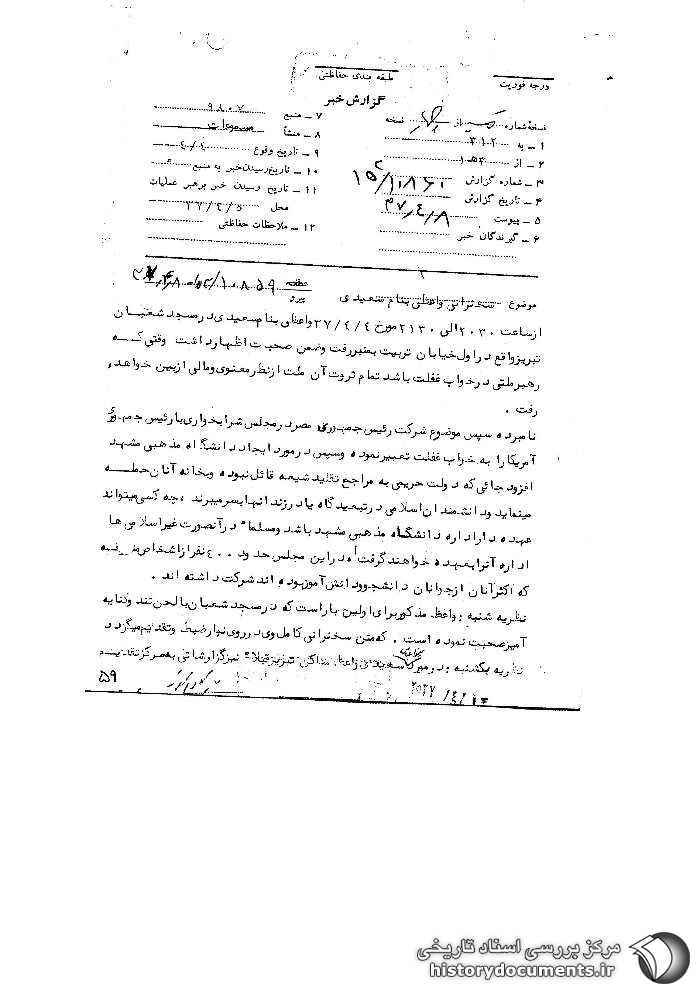 طبقه بندی حفاظتی
درجه فوریت
گزارش خبر
نسخه شماره از نسخه
۱ - به ۳۱۲
۲ - از ۳ھ۱
۳ - شماره گزارش ۱۵/۱۰۸۶۱
۴ - تاریخ گزارش ۳۷/۴/۸
۵ - پیوست
۶ - گیرندگان خبر
۷ - منبع ۹۸۰۷
۸ - منشأ مسموعات
۹ - تاریخ وقوع ۴/۰۴
۱۰ - تاریخ رسیدن خبر به منبع
۱۱ - تاریخ رسیدن خبر برهبر عملیات
محل ۳۷/۴/۵
۱۲ - ملاحظات حفاظتی
موضوع سخنرانی واعظی بنام سعیدی
پیرو
ازساعت ۲۰۳۰ الی ۲۱۳۰ مورخ ۳۷/۴/۴ واعظی بنام سعیدی در مسجد شعبان
تبریز واقع در اول خیابان تربیت بمنبر رفت وضمن صحبت اظهار داشت وقتی که
رهبر ملتی در خواب غفلت باشد تمام ثروت آن ملت از نظر معنوی ومالی از بین خواهد
رفت .
نامبرده سپس موضوع شرکت رئیس جمهوری مصر در مجلس شرابخواری با رئیس جمهور
آمریکا را به خواب غفلت تعبیر نموده وسپس در مورد ایجاد دانشگاه مذهبی مشهد
افزود جائی که دولت حریمی به مراجع تقلید شیعه قائل نبوده وبخانه آنان حمله
مینماید ودانشمندان اسلامی در تبعیدگاه یا در زندانها بسر میبرند ، چه کسی میتواند
عهده دار اداره دانشگاه مذهبی مشهد باشد ومسلما" در آنصورت غیر اسلامی ها
اداره آنرا بعهده خواهند گرفت در این مجلس حدود ۴۰۰ نفر از اشخاص متفرقه
که اکثر آنان از جوانان دانشجو ودانش آموز بوده اند شرکت داشته اند .
نظریه شنبه : واعظ مذکور برای اولین بار است که در مسجد شعبان با لحن تند وکنایه
آمیز صحبت نموده است . که متن سخنرانی کامل وی در روی نوار ضبط وتقدیم میگردد
نظریه یکشنبه : در مورد سعیدی واعظ ساکن تبریز قبلا" نیز گزارشاتی به مرکز تقدیم
۵۹
مرکز بررسی اسناد تاریخی
historydocuments.ir